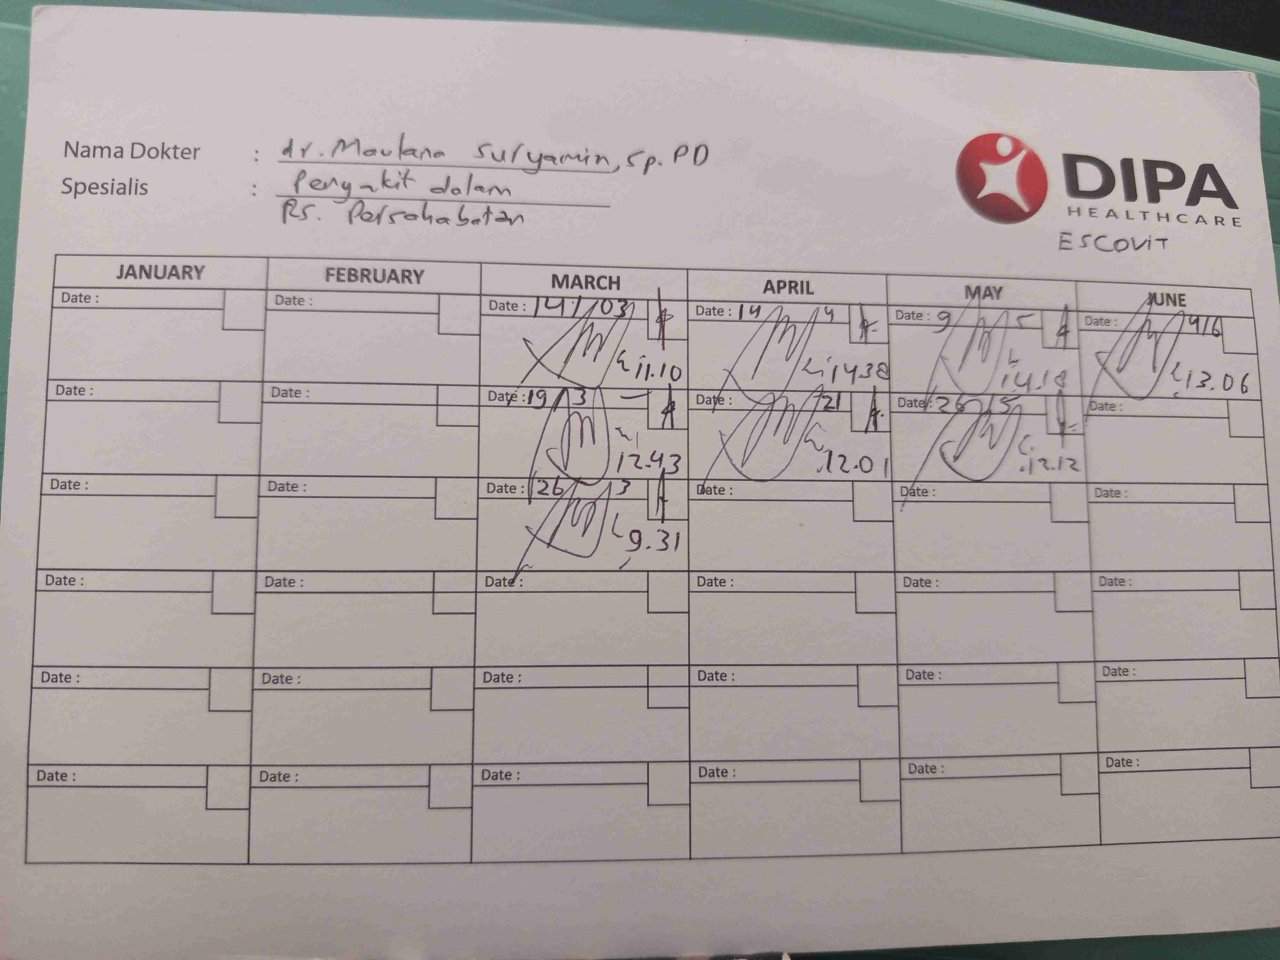 Nama Dokter : dr. Maulana Suryamin, Sp. PD
Spesialis : Penyakit dalam
RS. Persahabatan
DIPA
HEALTHCARE
ESCOVIT
JANUARY FEBRUARY MARCH APRIL MAY JUNE
Date : Date : Date : 14/03 Date : 14 4 Date : 9 5 Date : 4/6
11.10 14.38 14.18 13.06
Date : Date : Date : 19 3 Date : 21 Date : 26 5 Date :
12.43 12.01 12.12
Date : Date : Date : 26 3 Date : Date : Date :
9.31
Date : Date : Date : Date : Date : Date :
Date : Date : Date : Date : Date : Date :
Date : Date : Date : Date : Date : Date :